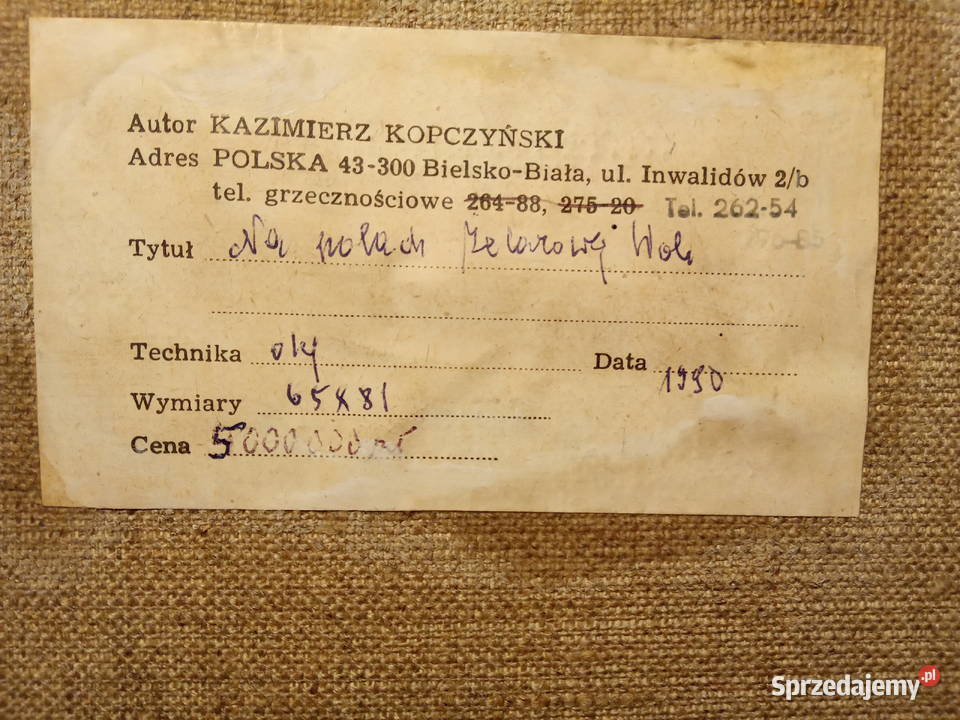 Autor KAZIMIERZ KOPCZYŃSKI
Adres POLSKA 43-300 Bielsko-Biała, ul. Inwalidów 2/b
tel. grzecznościowe 264-88, 275-20 Tel. 262-54
Tytuł Na polach Żelazowej Woli
Technika olej
Data 1990
Wymiary 65x81
Cena 5000000 zł
Sprzedajemy.pl